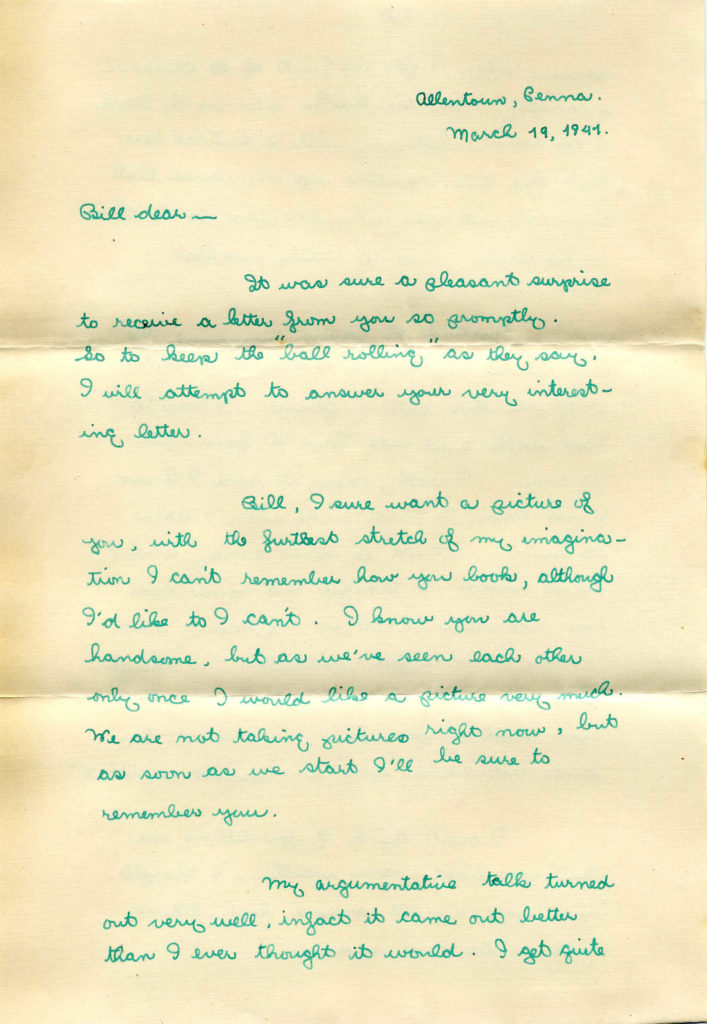 Allentown, Penna.
March 19, 1941.
Bill dear —
It was sure a pleasant surprise
to receive a letter from you so promptly.
So to keep the "ball rolling" as they say,
I will attempt to answer your very interest-
ing letter.
Bill, I sure want a picture of
you, with the furthest stretch of my imagina-
tion I can't remember how you look, although
I'd like to I can't. I know you are
handsome, but as we've seen each other
only once I would like a picture very much.
We are not taking pictures right now, but
as soon as we start I'll be sure to
remember you.
My argumentative talk turned
out very well, infact it came out better
than I ever thought it would. I get quite